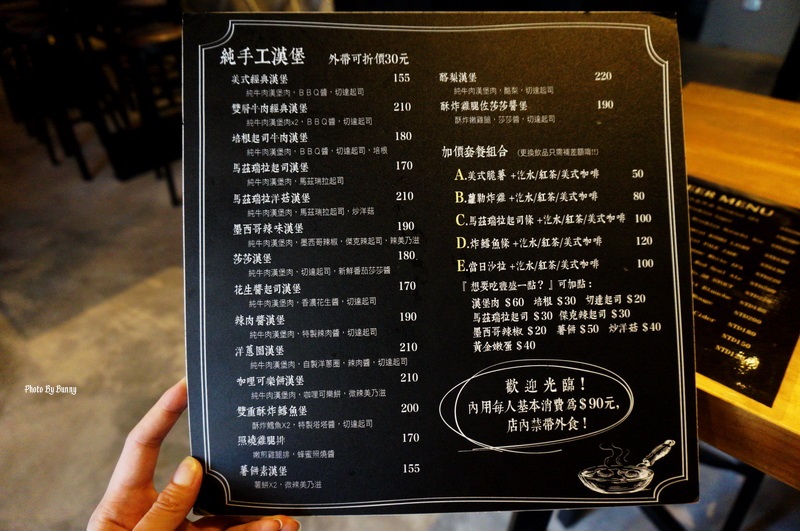 純手工漢堡 外帶可折價30元
美式經典漢堡 155
純牛肉漢堡肉，BBQ醬，切達起司
雙層牛肉經典漢堡 210
純牛肉漢堡肉x2，BBQ醬，切達起司
培根起司牛肉漢堡 180
純牛肉漢堡肉，BBQ醬，切達起司，培根
馬茲瑞拉起司漢堡 170
純牛肉漢堡肉，馬茲瑞拉起司
馬茲瑞拉洋菇漢堡 210
純牛肉漢堡肉，馬茲瑞拉起司，炒洋菇
墨西哥辣味漢堡 190
純牛肉漢堡肉，墨西哥辣椒，傑克辣起司，辣美乃滋
莎莎漢堡 180
純牛肉漢堡肉，切達起司，新鮮番茄莎莎醬
花生醬起司漢堡 170
純牛肉漢堡肉，香濃花生醬，切達起司
辣肉醬漢堡 190
純牛肉漢堡肉，特製辣肉醬，切達起司
洋蔥圈漢堡 210
純牛肉漢堡肉，自製洋蔥圈，辣肉醬，切達起司
咖哩可樂餅漢堡 210
純牛肉漢堡肉，咖哩可樂餅，微辣美乃滋
雙重酥炸鱈魚堡 200
酥炸鱈魚X2，特製塔塔醬，切達起司
照燒雞腿排 170
嫩煎雞腿排，蜂蜜照燒醬
薯餅素漢堡 155
薯餅X2，微辣美乃滋
酪梨漢堡 220
純牛肉漢堡肉，酪梨，切達起司
酥炸雞腿佐莎莎醬堡 190
酥炸嫩雞腿，莎莎醬，切達起司
加價套餐組合 (更換飲品只需補差額哦!!)
A.美式脆薯＋汽水/紅茶/美式咖啡 50
B.薩勒炸雞＋汽水/紅茶/美式咖啡 80
C.馬茲瑞拉起司條＋汽水/紅茶/美式咖啡 100
D.炸鱈魚條＋汽水/紅茶/美式咖啡 120
E.當日沙拉＋汽水/紅茶/美式咖啡 100
『想要吃豐盛一點？』可加點：
漢堡肉＄60 培根＄30 切達起司＄20
馬茲瑞拉起司＄30 傑克辣起司＄30
墨西哥辣椒＄20 薯餅＄50 炒洋菇＄40
黃金嫩蛋＄40
歡迎光臨！
內用每人基本消費為＄90元，
店內禁帶外食！
MENU
Photo By Bunny